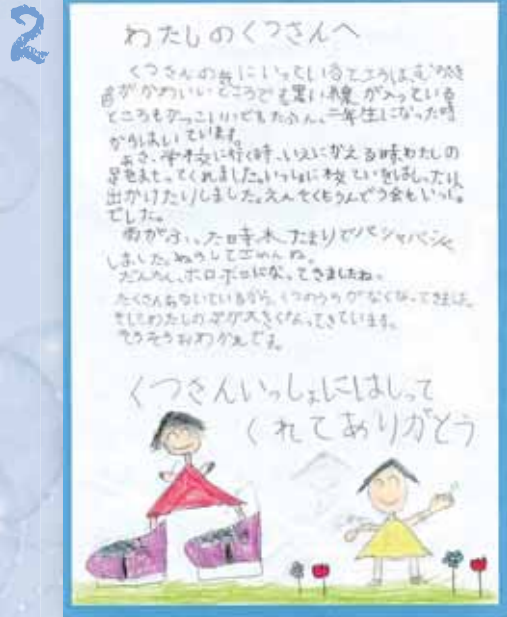 2
わたしのくつさんへ
くつさんの気にいっているところは、むらさき
色がかわいいところでも黒い線が入っている
ところもかっこいいでもたぶん、二年生になった時
からはいています。
あさ、学校に行く時、いえにかえる時わたしの
足をまもってくれました。いっしょに校ていをはしったり、
出かけたりしました。えんそくもうんどう会もいっしょ
でした。
雨がふった時水たまりでバシャバシャ
しました。ぬらしてごめんね。
だんだん、ボロボロになってきましたね。
たくさんあるいているから、くつのうらがなくなってきました。
そしてわたしの足が大きくなってきています。
そろそろおわかれです。
くつさんいっしょにはしって
くれてありがとう